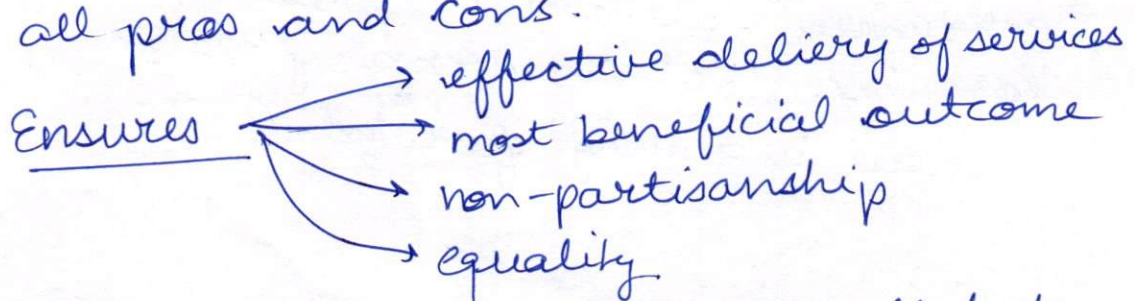 all pros and cons.
Ensures → effective deliery of services
→ most beneficial outcome
→ non-partisanship
→ equality